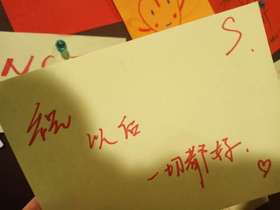 S.
祝
以后
一切都好.